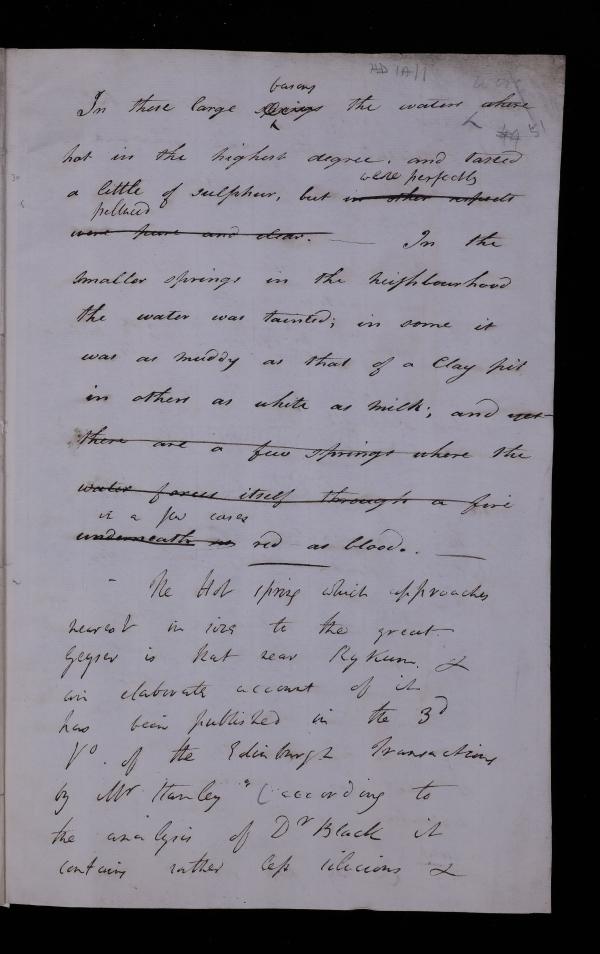 HD 1A/1
basons
In these large springs the waters where
hot in the highest degree, and tasted
were perfectly
a little of sulphur, but in other respects
pellucid
were pure and clear. — In the
smaller springs in the neighbourhood
the water was tainted; in some it
was as muddy as that of a Clay pit
in others as white as milk; and yet
there are a few springs where the
water forces itself through a fine
in a few cases
underneath as red as blood. —
The Hot spring which approaches
nearest in size to the great
Geyser is that near Rykum. &
an elaborate account of it
has been published in the 3d
Vo. of the Edinburgh Transactions
by Mr Stanley (according to
the analysis of Dr Black it
contains rather less silicious &